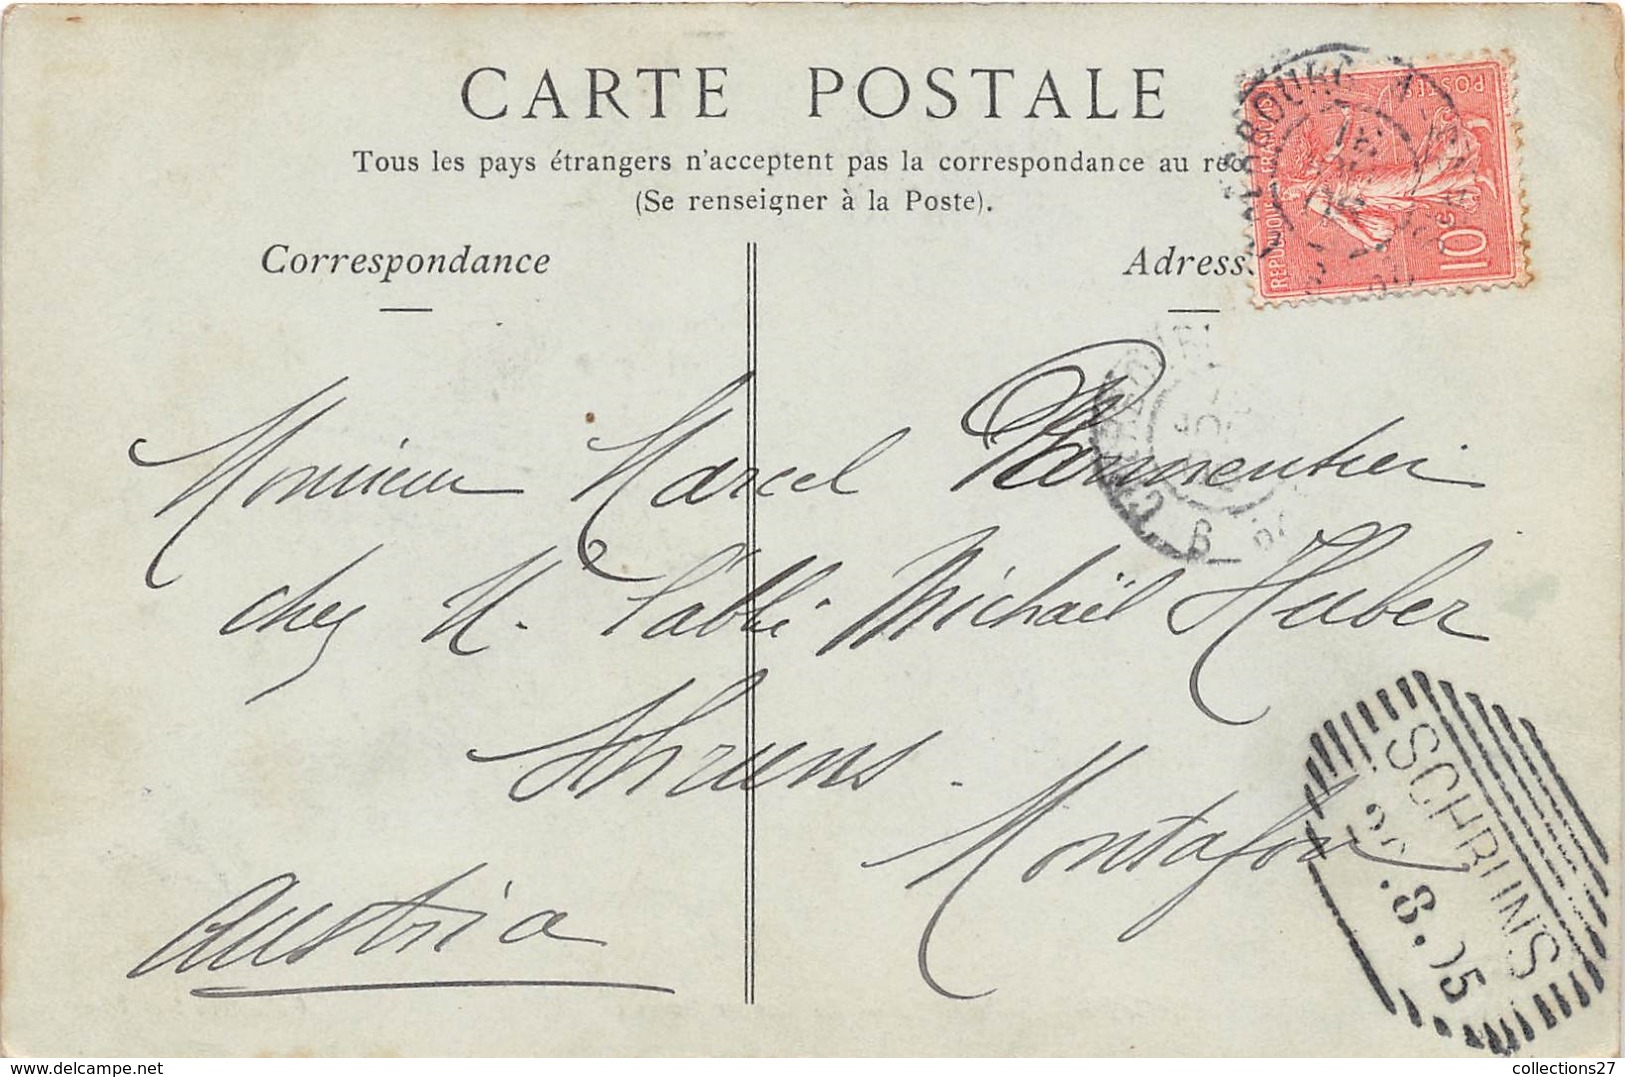 CARTE POSTALE
Tous les pays étrangers n'acceptent pas la correspondance au
(Se renseigner à la Poste).
Correspondance
Adress
POSTES
REPUBLIQUE FRANÇAISE
10c
CHERBOURG
Monsieur Marcel
chez M. l'abbé Michaël Huber
Schruns.
Montafon
Austria
SCHRUNS
8.05
delcampe.net
collections27